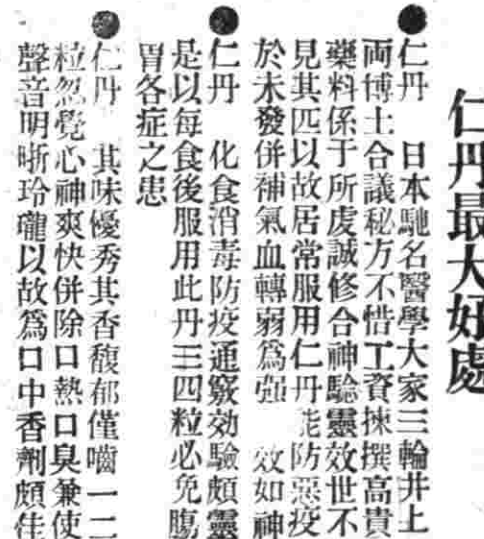 仁丹最大好處
仁丹 日本馳名醫學大家三輪井上
両博士合議秘方不惜工資揀撰高貴
藥料係于所虔誠修合神驗靈效世不
見其匹以故居常服用仁丹能防惡疫
於未發併補氣血轉弱爲强 效如神
仁丹 化食消毒防疫通竅効驗頗靈
是以每食後服用此丹三四粒必免腸
胃各症之患
仁丹 其味優秀其香馥郁僅嚙一二
粒忽覺心神爽快併除口熱口臭兼使
聲音明晰玲瓏以故爲口中香劑頗佳